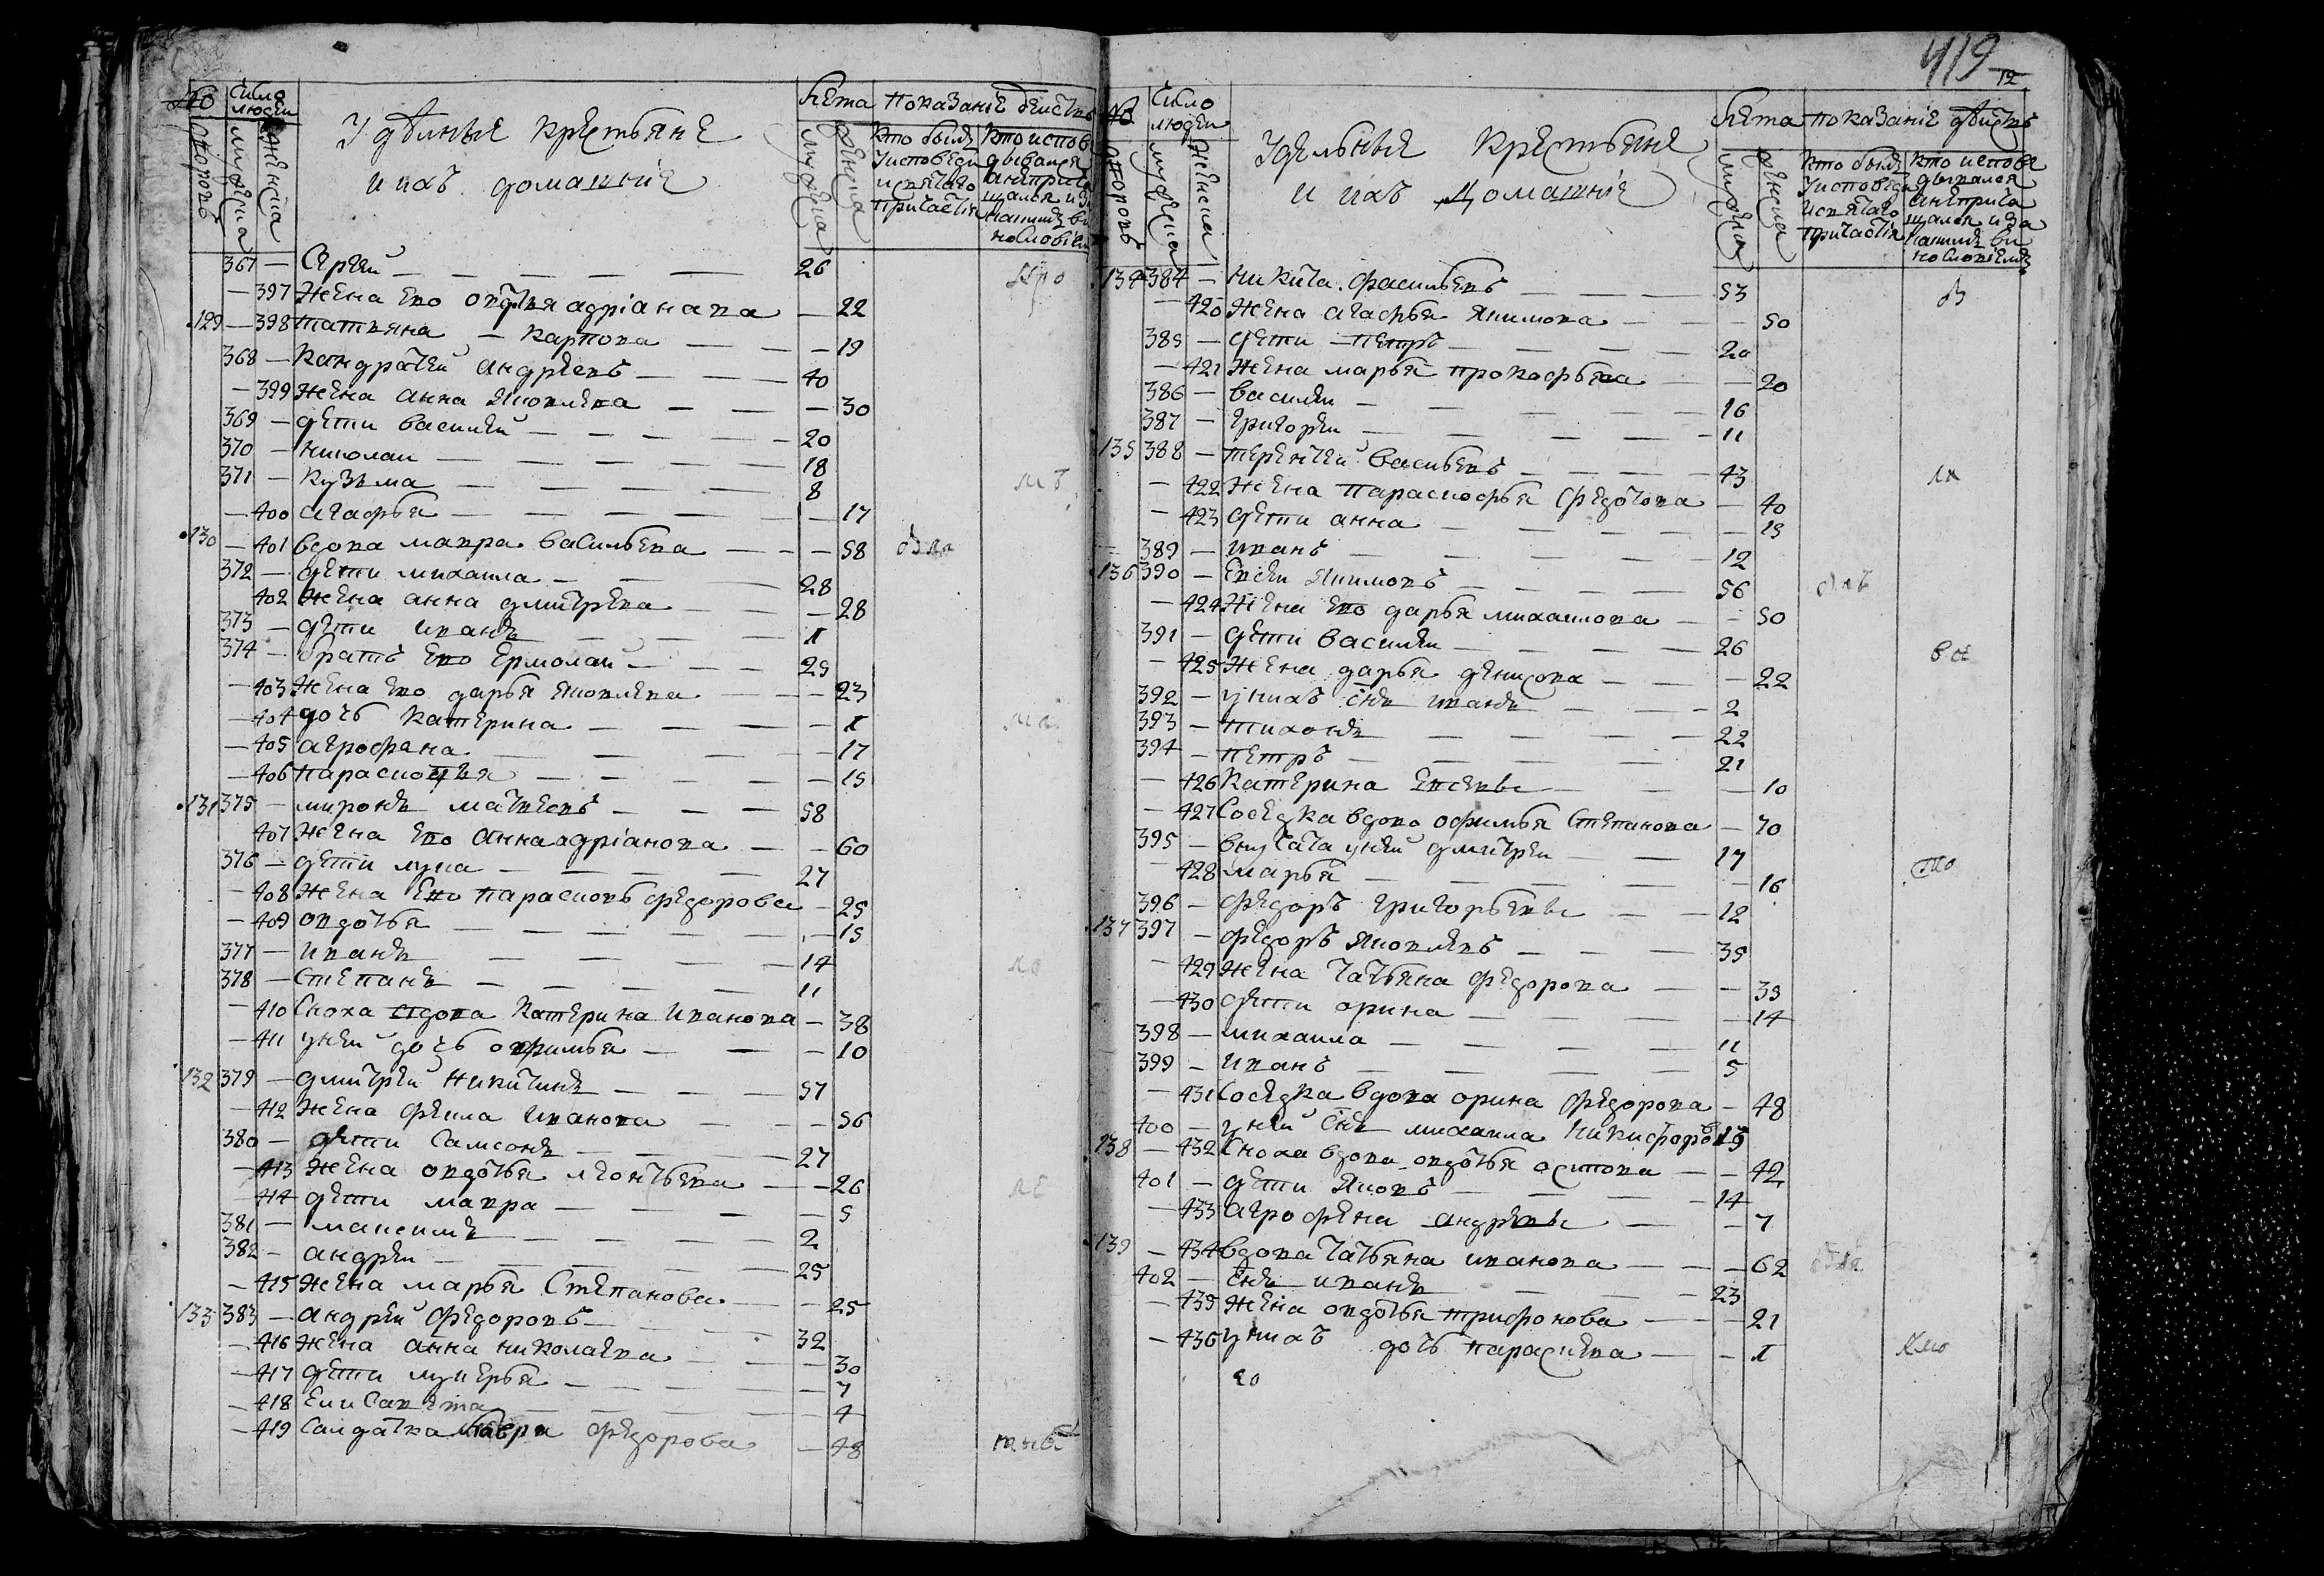 419
12
№ дворовъ
Число людей
мужеска
женска
Удѣлные крестьяне
и ихъ домашнie
Лѣта
мужеска
женска
Показанiе действъ
Кто былъ
у исповѣди
и святаго
причастiя
367 — Сергей — 26
— 397 Жена его овдотья адрiанава — 22
129 — 398 татияна — карпова — 19
368 — Кандратей андреевъ — 40
— 399 Жена анна яковлева — 30
369 — дети василей — 20
370 — николаи — 18
371 — Кузьма — 8
— 400 агафья — 17
130 — 401 вдова мавра васильева — 58
372 — дети михаила — 28
402 Жена анна дмитрева — 28
373 — дети иванъ — 1
374 — братъ его Ермолаи — 25
— 403 Жена его дарья яковлева — 23
— 404 дочь катерина — 1
— 405 агрофена — 17
— 406 парасковья — 15
131 375 — миронъ матвеевъ — 58
407 Жена его анна адрiанова — 60
376 — дети лука — 27
— 408 Жена его парасковь федорова — 25
— 409 овдотья — 15
377 — иванъ — 14
378 — Степанъ — 11
— 410 Сноха вдова катерина иванова — 38
— 411 у неи дочь офимья — 10
132 379 — дмитрей никитинъ — 57
— 412 Жена фекла иванова — 56
380 — дети Самсонъ — 27
— 413 Жена овдотья леонтьева — 26
— 414 дети мавра — 5
381 — максимъ — 2
382 — андреи — 25
— 415 Жена марья Степанова — 25
133 383 — андреи федоровъ — 32
— 416 Жена анна николаева — 30
— 417 дети лукерья — 7
— 418 Елисавета — 4
— 419 Салдатка мавра федорова — 48
№ дворовъ
Число людеи
мужеска
женска
Удельные крестьяне
и ихъ домашнiе
Лѣта
мужеска
женска
показанiе дѣиствъ
Кто былъ
у исповеди
и святаго
причастiя
134 384 — никита фасильевъ — 53
— 420 Жена агафья якимова — 50
385 — дети — петръ — 20
— 421 Жена марья прокофьева — 20
386 — василеи — 16
387 — григореи — 11
135 388 — терентеи васильевъ — 43
— 422 Жена парасковья федотова — 40
— 423 дети анна — 15
389 — иванъ — 12
136 390 — Евсеи якимовъ — 56
— 424 Жена его дарья михаилова — 50
391 — дети василеи — 26
— 425 Жена дарья денисова — 22
392 — у нихъ снъ иванъ — 2
393 — тихонъ — 22
394 — петръ — 21
— 426 Катерина — 10
— 427 Соседка вдова офимья Степанова — 70
395 — внучата у неи дмитреи — 17
428 марья — 16
396 — федоръ григорьевъ — 12
137 397 — федоръ яковлевъ — 35
— 429 Жена татьяна федорова — 35
— 430 дети орина — 14
398 — михаила — 11
399 — иванъ — 5
— 431 Соседка вдова орина федорова — 48
400 — у неи снъ михаила никифоровъ 15
138 — 432 Сноха вдова овдотья осипова — 42
401 — дети яковъ — 14
— 433 агрофена — 7
139 — 434 вдова татьяна иванова — 62
402 — снъ иванъ — 23
— 435 Жена овдотья трифонова — 21
— 436 у нихъ дочь параскева — 1